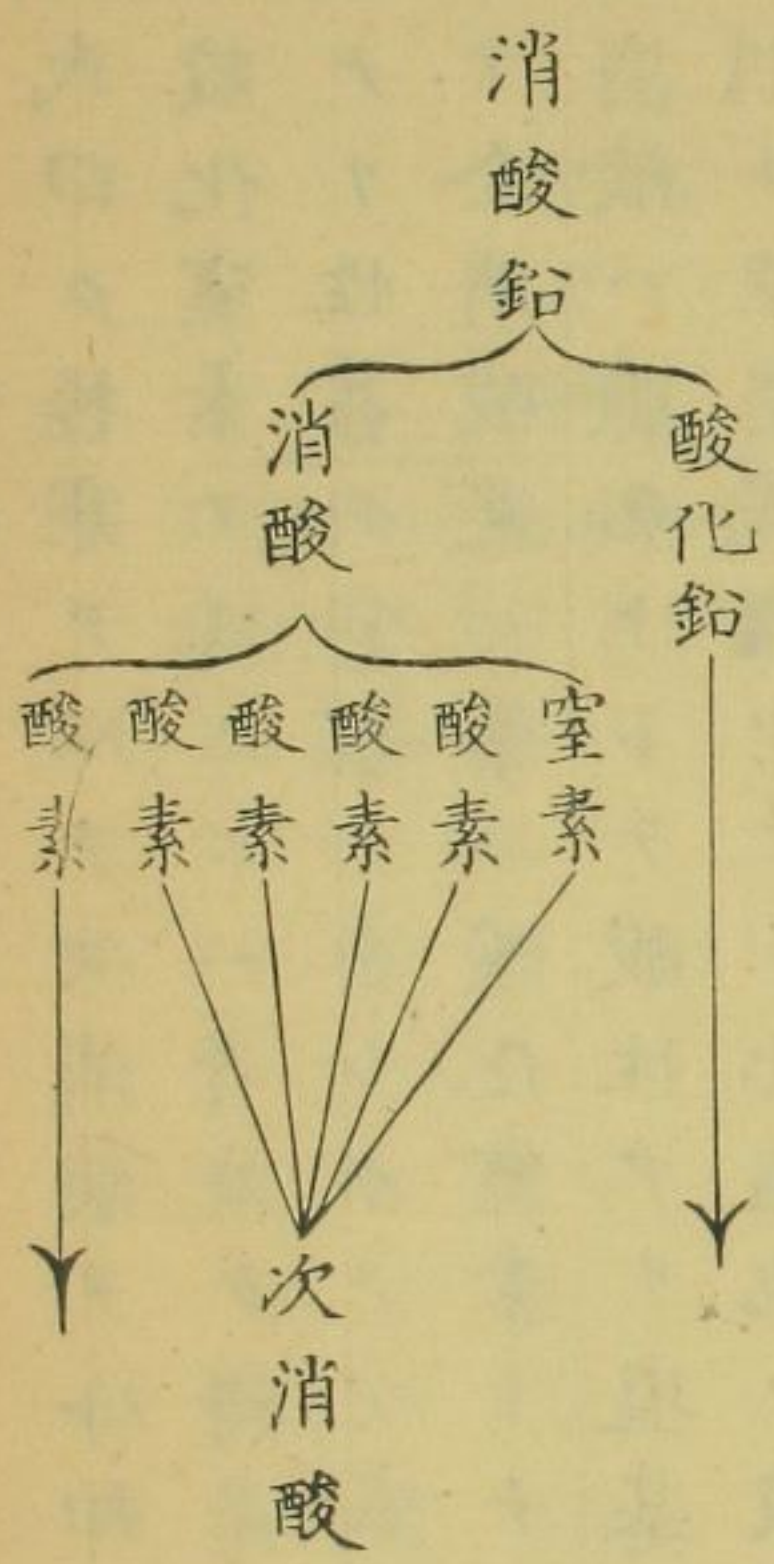 消酸鉛
酸化鉛
消酸
窒素
酸素
酸素
酸素
酸素
酸素
次消酸